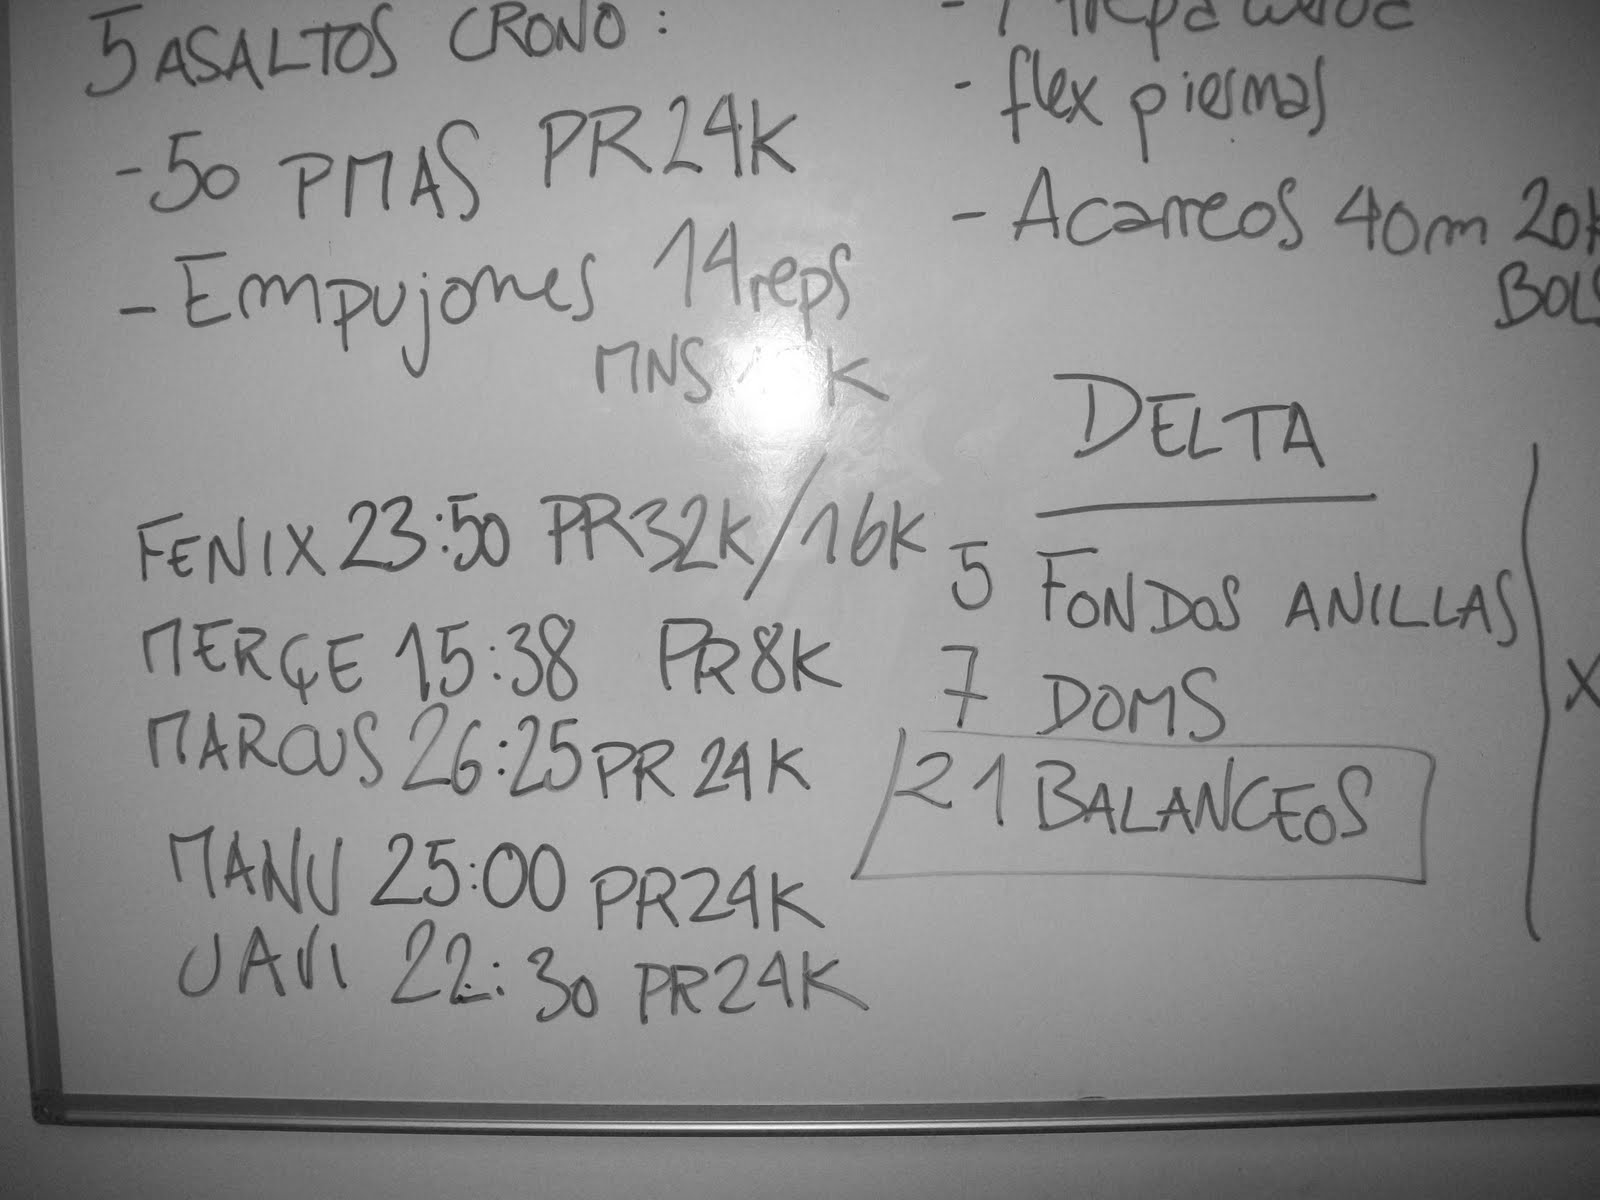 5 ASALTOS CRONO:
- 50 PMAS PR 24K
- Empujones 14 reps
MNS K
FENIX 23:50 PR32K/16K
MERÇE 15:38 PR8K
MARCUS 26:25 PR 24K
MANU 25:00 PR24K
JAVI 22:30 PR24K
- flex piernas
- Acarreos 40m 20K
DELTA
5 FONDOS ANILLAS
7 DOMS
21 BALANCEOS
X